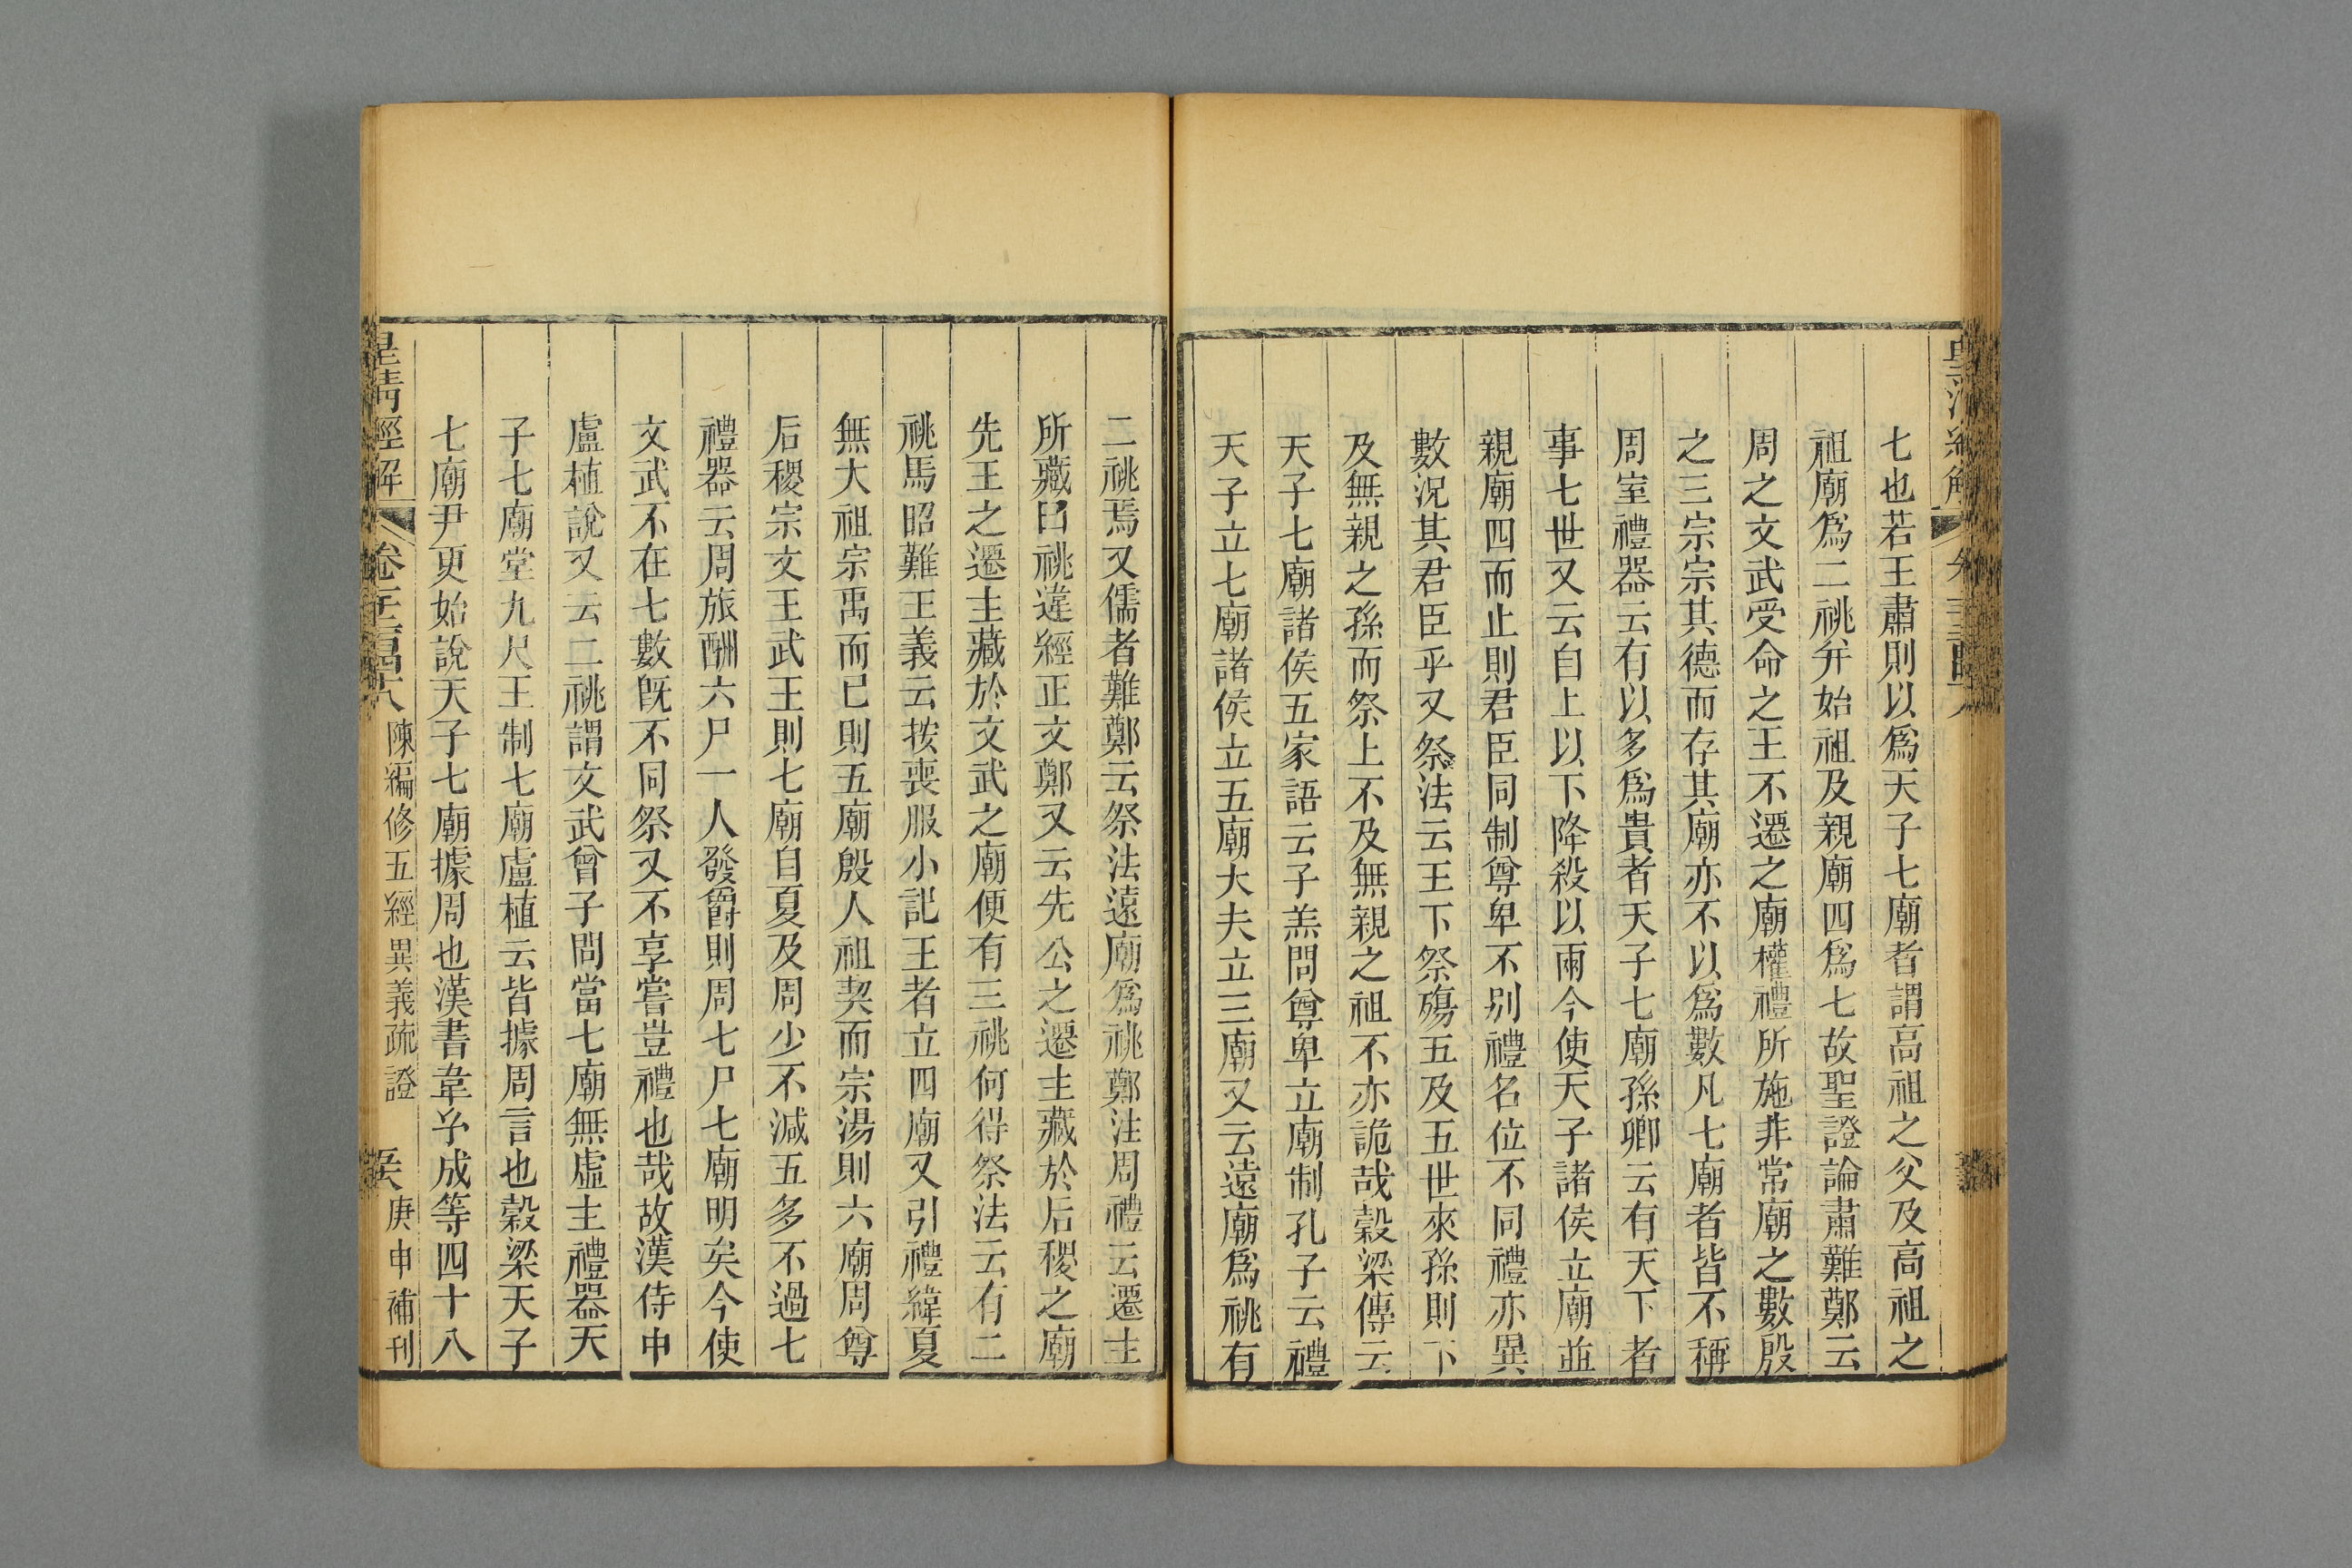 七也若王肅則以爲天子七廟者謂高祖之父及高祖之
祖廟爲二祧并始祖及親廟四爲七故聖證論肅難鄭云
周之文武受命之王不遷之廟權禮所施非常廟之數殷
之三宗宗其德而存其廟亦不以爲數凡七廟者皆不稱
周室禮器云有以多爲貴者天子七廟孫卿云有天下者
事七世又云自上以下降殺以兩今使天子諸侯立廟並
親廟四而止則君臣同制尊卑不别禮名位不同禮亦異
數況其君臣乎又祭法云王下祭殤五及五世來孫則下
及無親之孫而祭上不及無親之祖不亦詭哉穀梁傳云
天子七廟諸侯五家語云子羔問尊卑立廟制孔子云禮
天子立七廟諸侯立五廟大夫立三廟又云遠廟爲祧有
二祧焉又儒者難鄭云祭法遠廟爲祧鄭注周禮云遷主
所藏曰祧違經正文鄭又云先公之遷主藏於后稷之廟
先王之遷主藏於文武之廟便有三祧何得祭法云有二
祧馬昭難王義云按喪服小記王者立四廟又引禮緯夏
無大祖宗禹而已則五廟殷人祖契而宗湯則六廟周尊
后稷宗文王武王則七廟自夏及周少不減五多不過七
禮器云周旅酬六尸一人發爵則周七尸七廟明矣今使
文武不在七數既不同祭又不享嘗豈禮也哉故漢侍中
盧植說又云二祧謂文武曾子問當七廟無虛主禮器天
子七廟堂九尺王制七廟盧植云皆據周言也穀梁天子
七廟尹更始說天子七廟據周也漢書韋玄成等四十八
皇清經解 陳編修五經異義疏證 庚申補刊